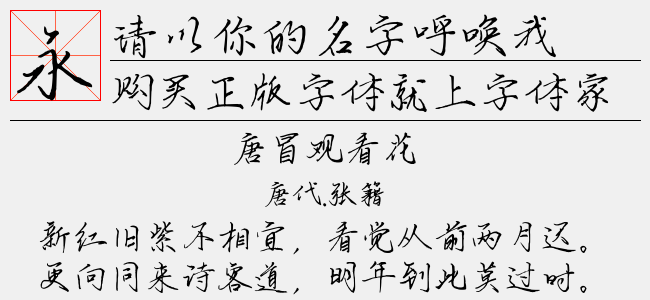 永
请以你的名字呼唤我
购买正版字体就上字体家
唐冒观看花
唐代.张籍
新红旧紫不相宜，看觉从前两月迟。
更向同来诗客道，明年到此莫过时。